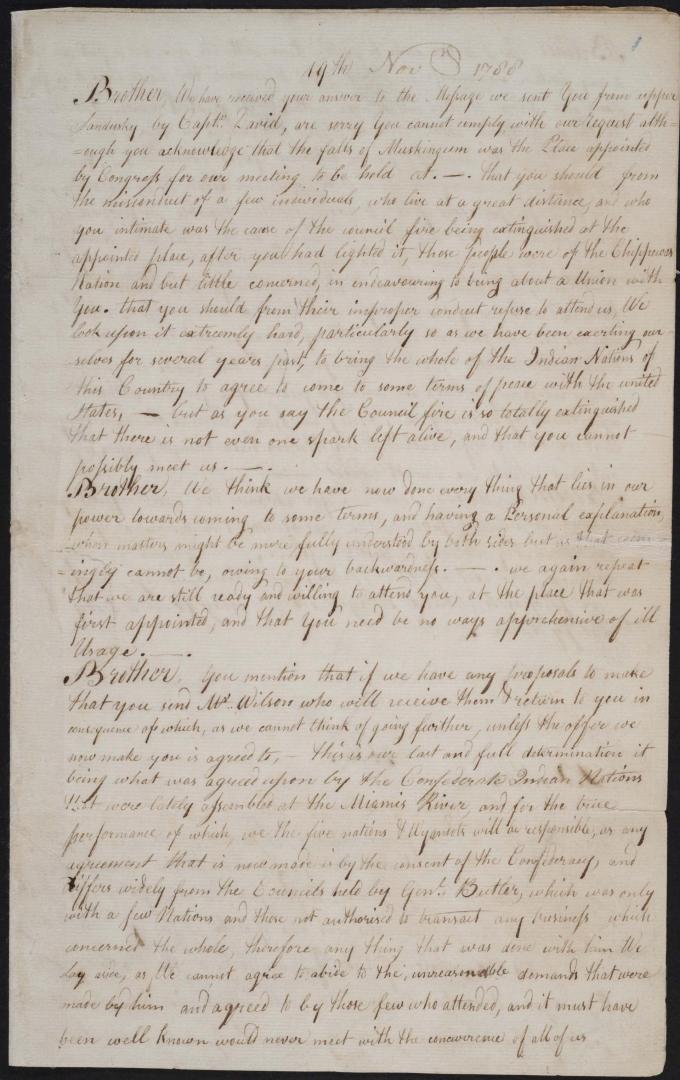 19th Novr 1788
Brother, We have received your answer to the Message we sent You from upper
Sandusky by Captn. David, are sorry you cannot comply with our request alth=
=ough you acknowledge that the falls of Muskingum was the Place appointed
by Congress for our meeting to be held at. —. that you should from
the misconduct of a few individuals, who live at a great distance, and who
you intimate was the cause of the council fire being extinguished at the
appointed place, after you had lighted it, those people were of the Chippewas
Nation and but little concerned, in endeavouring to bring about a Union with
You. that you should from their improper conduct refuse to attend us, We
look upon it extremely hard, particularly so as we have been exerting our=
selves for several years past, to bring the whole of the Indian Nations of
this Country to agree to come to some terms of peace with the united
States, — but as you say the Council fire is so totally extinguished
that there is not even one spark left alive, and that you cannot
possibly meet us. —.
Brother, We think we have now done every thing that lies in our
power towards coming to some terms, and having a Personal explanation,
when matters might be more fully understood by both sides but as that seem=
=ingly cannot be, owing to your backwardness. —. we again repeat
that we are still ready and willing to attend you, at the place that was
first appointed, and that You need be no ways apprehensive of ill
Usage. —.
Brother, You mention that if we have any proposals to make
that you send Mr. Wilson who will receive them & return to you in
consequence of which, as we cannot think of going further, unless the offer we
now make you is agreed to, — this is our last and full determination it
being what was agreed upon by the Confederate Indian Nations
that were lately assembled at the Miamis River, and for the true
performance of which, we the five nations & Wyandots will be responsible, as any
agreement that is now made is by the consent of the Confederacy, and
differs widely from the Councils held by Genl. Butler, which was only
with a few Nations and those not authorised to transact any business which
concerned the whole, therefore any thing that was done with him We
lay aside, as We cannot agree to abide to the, unreasonable demands that were
made by him and agreed to by those few who attended, and it must have
been well known would never meet with the concurrence of all of us